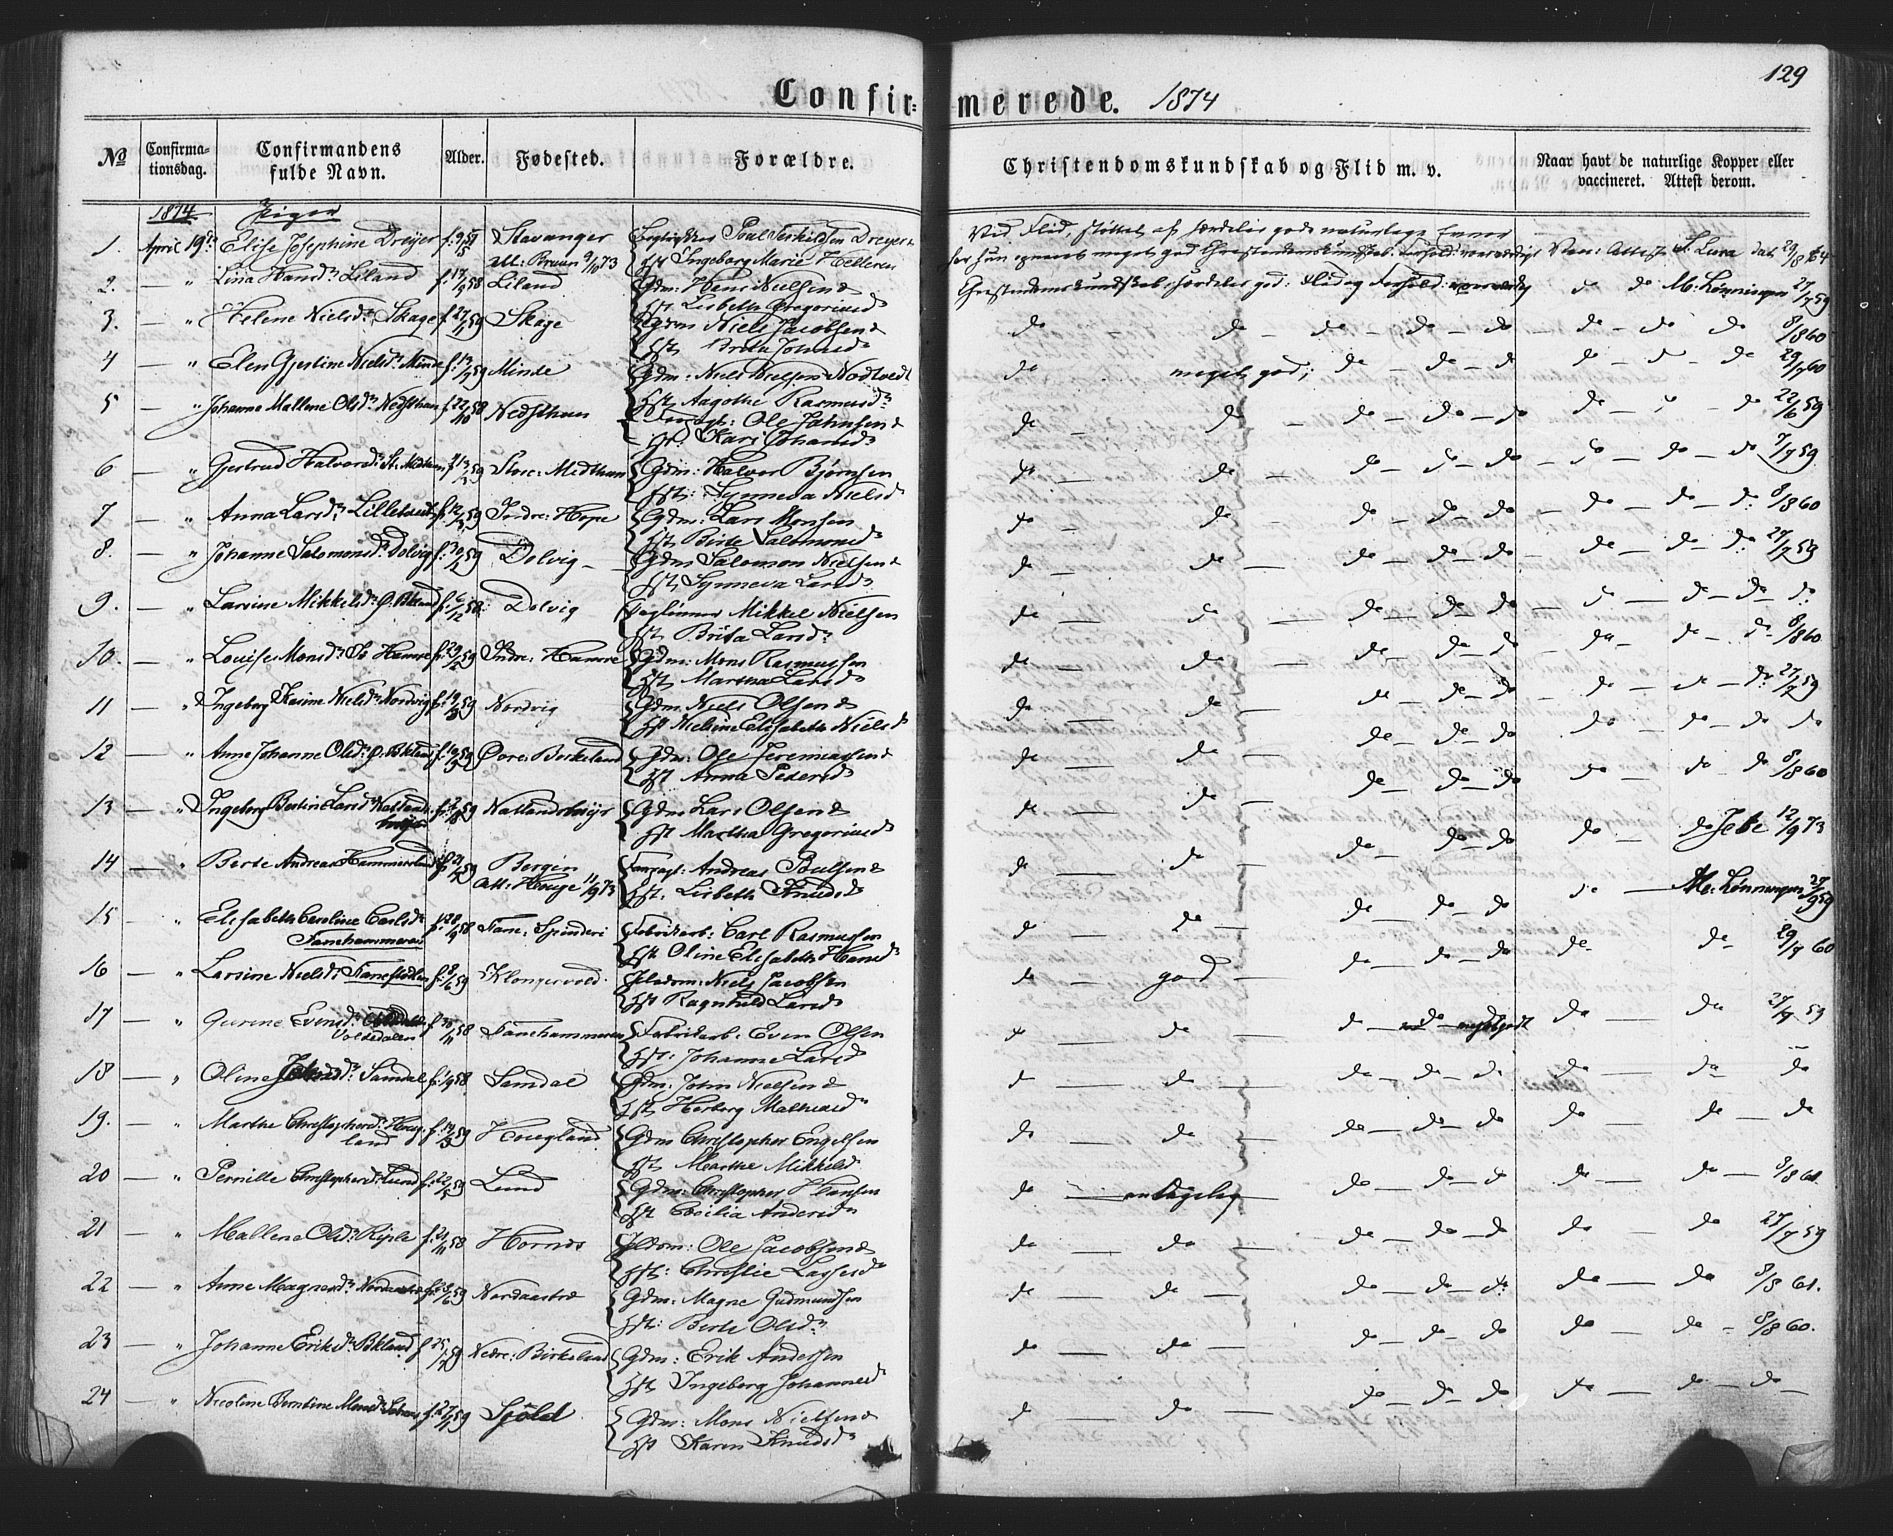 129
Confirmerede. 1874
No
Confirmationsdag.
Confirmandens fulde Navn.
Alder.
Fødested.
Forældre.
Christendomskundskab og Flid m. v.
Naar havt de naturlige Kopper eller vaccineret. Attest derom.
1874 Piger
1. April 19de Elise Josephine Dreyer Stavanger Poul Terkildsen Dreyer &
Att: Bruun 9/10 73 Hst Ingeborg Marie
Ved Flid, støttet af særdeles gode naturlige Evner
har hun meget god Christendomskundskab. Vacc: Attest S. Lura dat 29/8 64
2. — " Lina Hansd: Liland f. 58 Liland Gdm: Hans Nielsen &
Hst Lisbeth Gregoriusd
Christendomskundskab særdeles god; Flid og Forhold do do M: Lønningen 27/7 59
3. — " Helene Nielsd: Skage f. 27/1 59 Skage Gdm Niels Jacobsen &
Hst Brita Johnsd
do do do do do do do do 8/8 60
4 — " Elen Gjertine Nielsd: Minde f. 59 Minde Gdm: Niels Nielsen Nødtvedt
Hst Aagothe Rasmusd:
do meget god; do do do do do do 29/7 60
5 — " Johanne Mallene Olsd: Nedsthun f. 22/10 58 Nedsthun Ole Johnsen &
Hst: Kari Johansd:
do do do do do do do 22/6 59
6 — " Gertrud Halvorsd: St: Midthun f. 13/3 59 Store: Midthun Gdm: Halvor Bjørnsen
Hst: Synneva Nielsd
do do do do do do do do 7/7 59
7 — " Anna Larsd: f. 12/3 59 Indre: Hope Gdm: Lars Monsen
Hst Birte Salomonsd
do do do do do do do do: 8/8 60
8. — " Johanne Salomonsd: Dolvig f. 30/2 59 Dolvig Gdm Salomon Nielsen &
Hst Synneva Larsd:
do do do do do do do do: 27/7 59
9. — " Larsine Mikkelsd: Ø. Bkland f. 6/12 58 Dolvig Mikkel Nielsen
Hst Brita Larsd:
do do do do do do do do do:
10. — " Louise Monsd: Hamre f. 29/2 59 Indre: Hamre Gdm: Mons Rasmussen
Hst Martha Larsd:
do do do do do do do do 8/8 60
11 — " Ingeborg Karine Nielsd: Nordvig f. 19/3 59 Nordvig Gdm Niels Olsen &
Hst Nielsine Elisabeth Nielsd
do do do do do do do do: 27/7 59
12 — " Anne Johanne Olsd: Ø. Bkland f. 16/3 59 Øvre: Birkeland Gdm: Ole Jeremiassen &
Hst Anna Pedersd:
do do do do do do do do do
13 — " Ingeborg Bertine Larsd: f. 59 Natlandshøjs Gdm Lars Olsen &
Hst Martha Gregoriusd:
do do do do do do do do 8/8 60
14 — " Berte Andreasd Hammersland f. 21/4 59 Bergen Andreas Poulsen &
Att: Hauge 11/9 73 Hst. Lisbeth Knudsd:
do do do do do do do Jebe 12/9 73
15 — " Elisabeth Caroline Carlsd: f. 28/9 58 Fane: Spinderi Fabrikarb: Carl Rasmussen
Fanehammeren Hst Oline Elisabeth Hansd:
do do do do do do M: Lønningen 27/7 59
16 — " Larsine Nielsd: f. 8/6 59 Klongervold Niels Jacobsen
Hst Ragnhild Larsd:
do god do do do do do 29/7 60
17 — " Gurine Evensd: f. 11 58 Fanehammeren Fabrikarb: Even Olsen
Voldedalen Hst: Johanne Larsd:
do do do do meget godt do do 27/7 59
18 — " Oline Johnsd: Samdal f. 1/9 58 Samdal Gdm: John Nielsen &
Hst Herborg Mathiasd:
do do do do do do do do
19. — " Marthe Christophersd: Haugland f. 19/3 59 Hougland Gdm Christopher Engelsen
Hst Marthe Mikkelsd
do do do do do do do do
20 — " Pernille Christophersd: Lund f. 22/5 59 Lund Gdm: Christopher Hansen
Hst Cecilia Andersd:
do antagelig do do do do do 8/8 61
21 — " Mallene Olsd: Riple f. 21/11 58 Hornæs Ole Jacobsen &
Hst: Christie Lassesd:
do do do do do do do 27/7 59
22 — " Anne Magnesd: Nordaastræ f. 8/6 59 Nordaastræ Gdm: Magne Gudmundsen
Hst: Berte Olsd:
do do do do do do do 8/8 61.
23 — " Johanne Eriksd: Bkland f. 25/7 59 Nedre: Birkeland Gdm: Erik Andersen
Hst Ingeborg Johannesd:
do do do do do do do 8/8 60.
24 — " Nicoline Berntine Monsd: f. 27/1 59 Sjöld Gdm: Mons Nielsen &
Hst Karen Knudsd:
do do do do do do do do